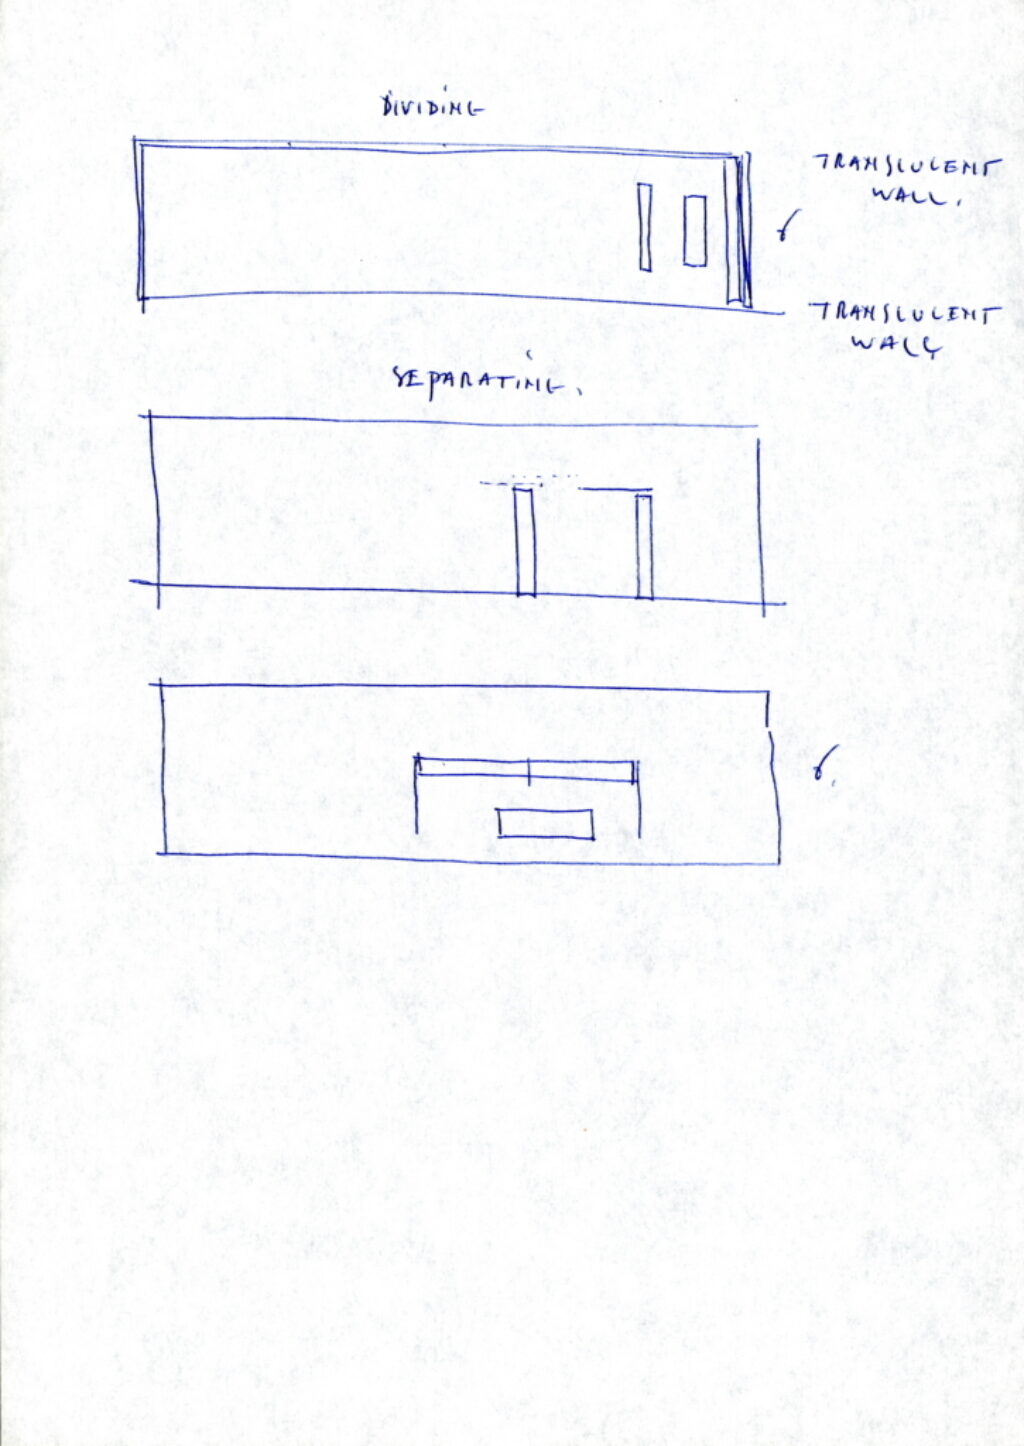 DIVIDING
TRANSLUCENT
WALL.
TRANSLUCENT
WALL
SEPARATING.